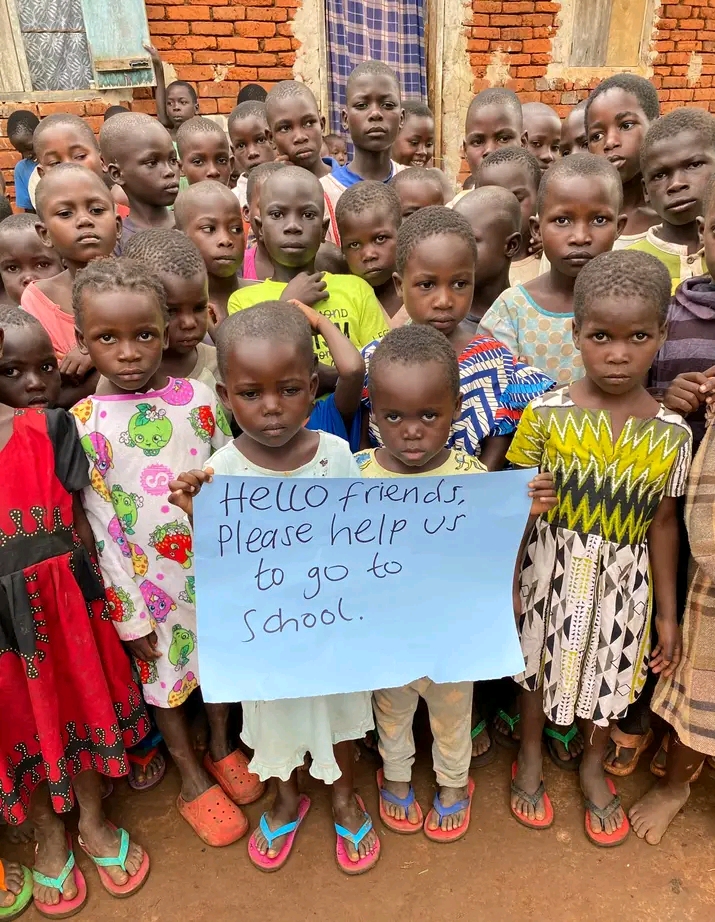 Hello friends,
Please help us
to go to
School.